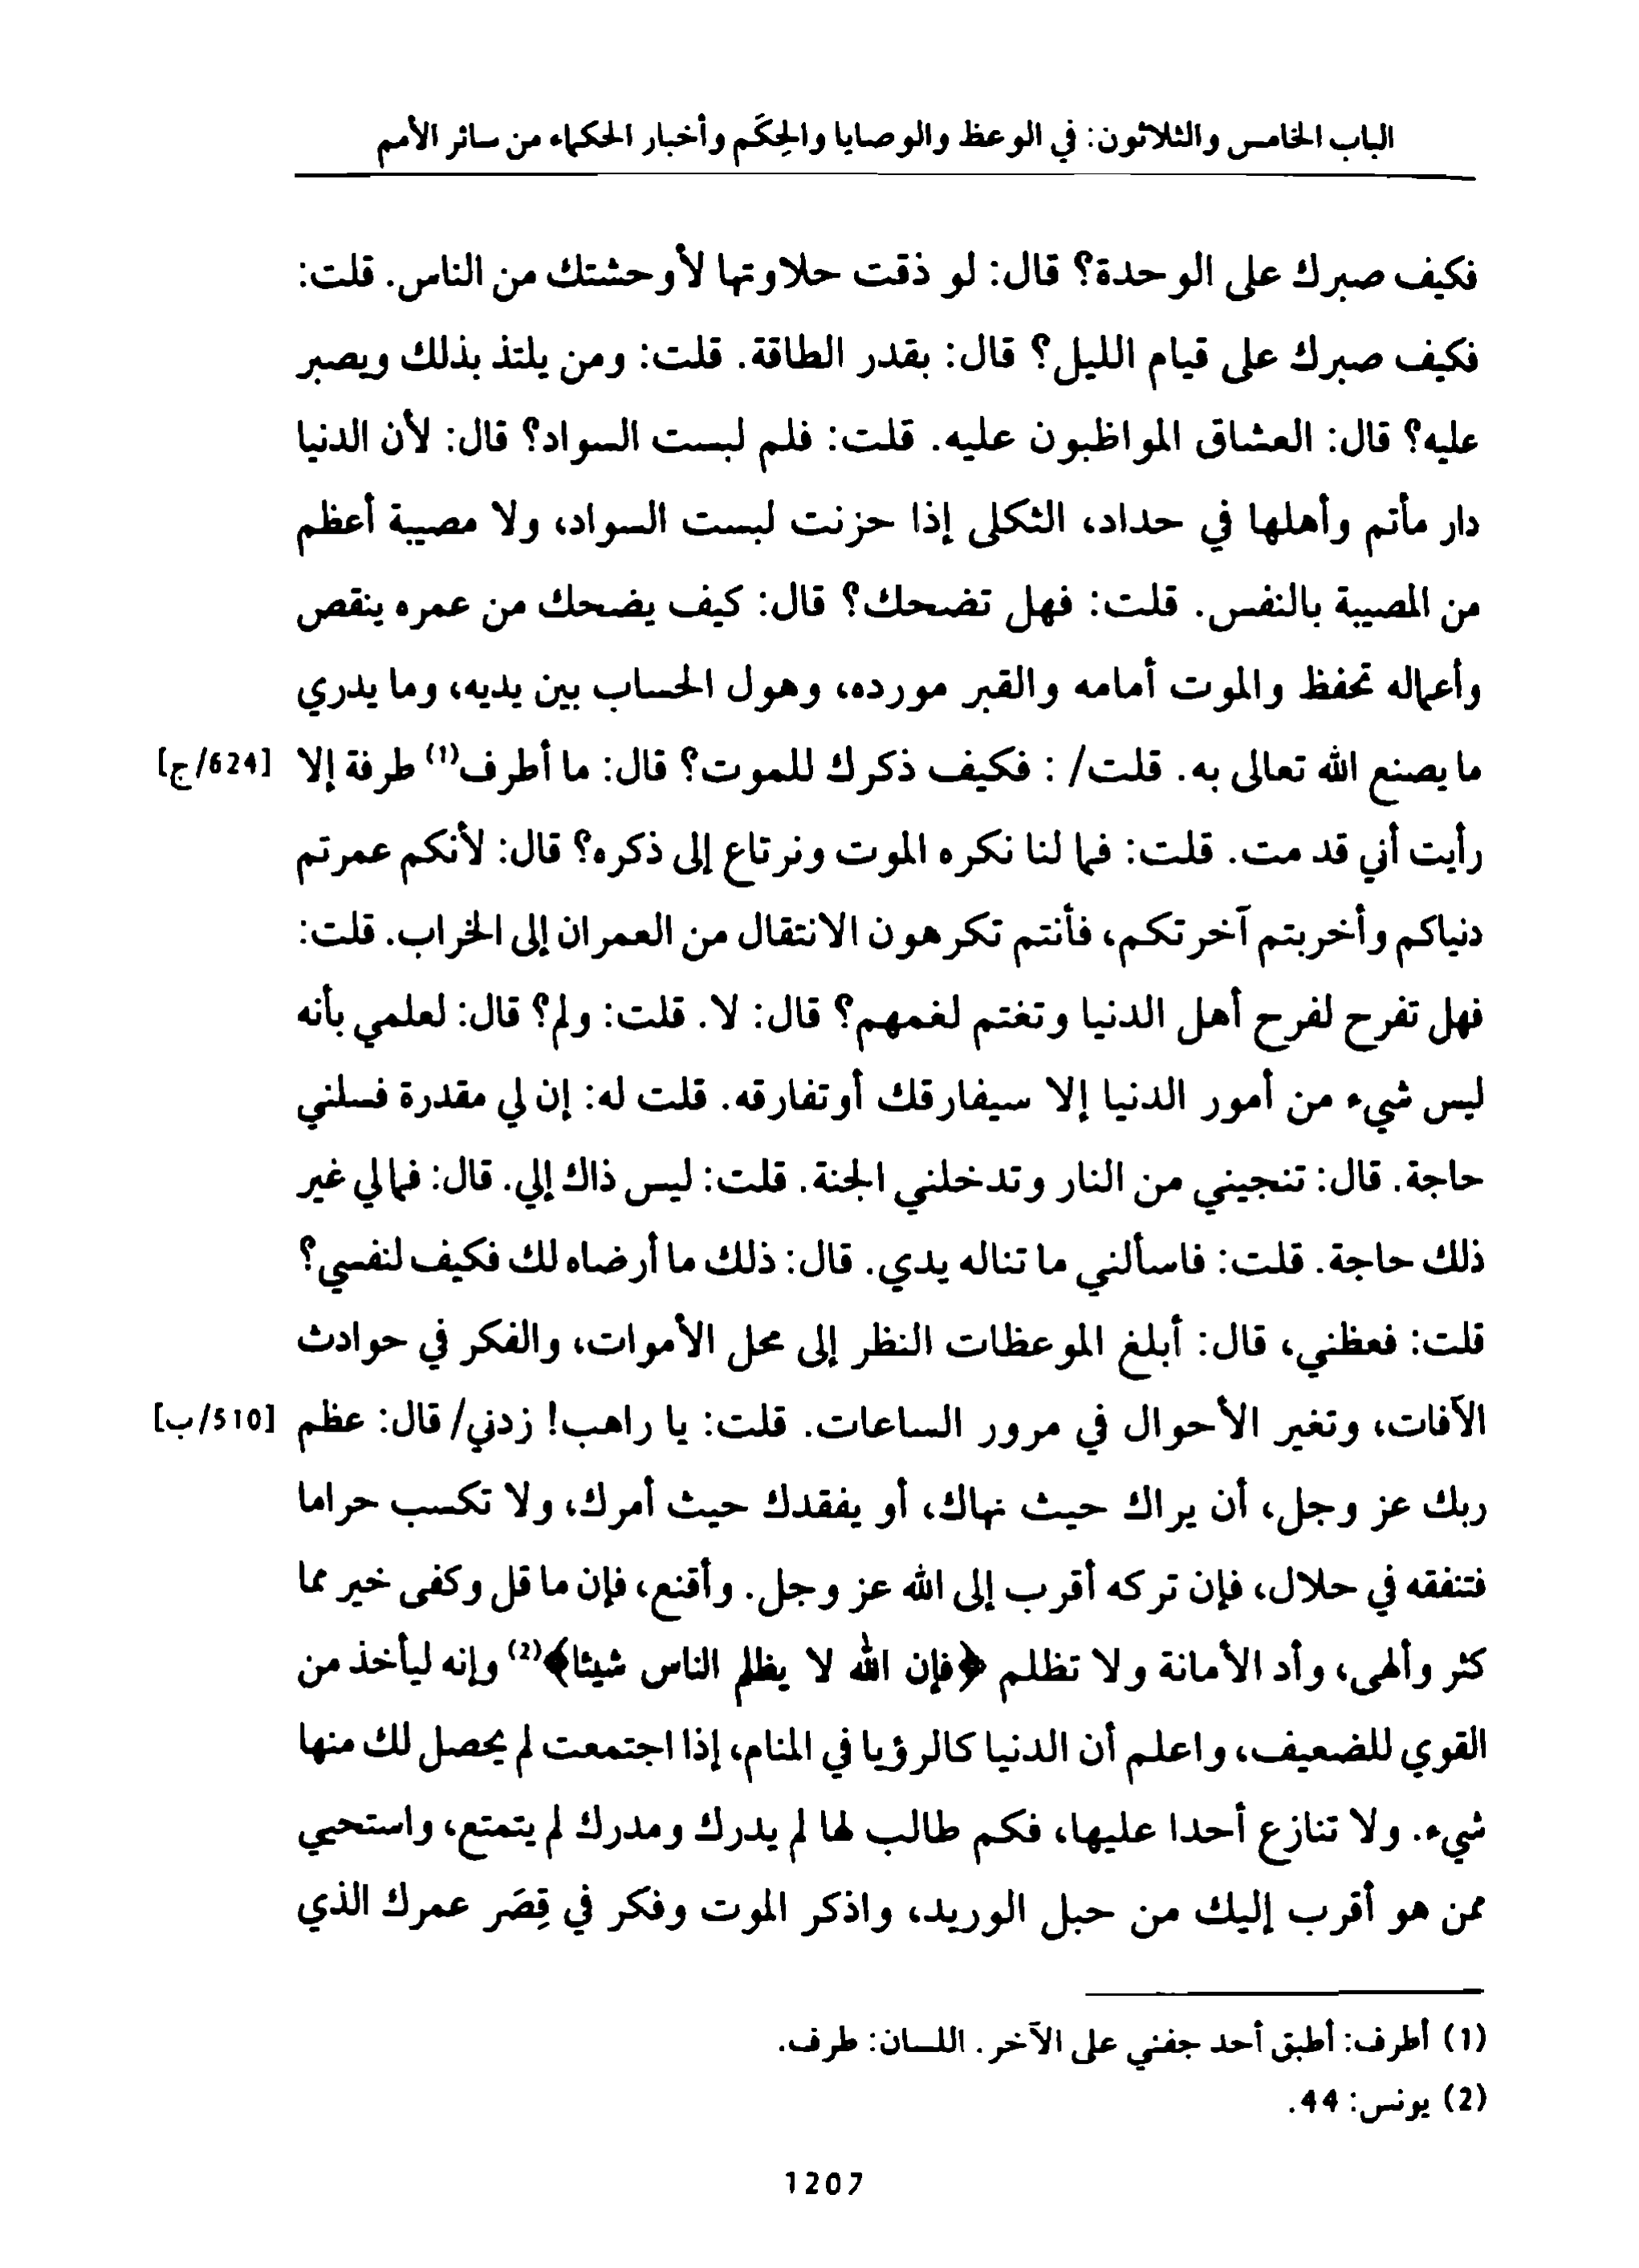 الباب الخامس والثلاثون: في الوعظ والوصايا والحِكَم وأخبار الحكماء من سائر الأمم
فكيف صبرك على الوحدة؟ قال: لو ذقت حلاوتها لأوحشتك من الناس. قلت:
فكيف صبرك على قيام الليل؟ قال: بقدر الطاقة. قلت: ومن يلتذ بذلك ويصبر
عليه؟ قال: العشاق المواظبون عليه. قلت: فلم لبست السواد؟ قال: لأن الدنيا
دار مأتم وأهلها في حداد، الثكلى إذا حزنت لبست السواد، ولا مصيبة أعظم
من المصيبة بالنفس. قلت: فهل تضحك؟ قال: كيف يضحك من عمره ينقص
وأعماله تحفظ والموت أمامه والقبر مورده، وهول الحساب بين يديه، وما يدري
ما يصنع الله تعالى به. قلت/ : فكيف ذكرك للموت؟ قال: ما أطرف(1) طرفة إلا [624/ج]
رأيت أني قد مت. قلت: فما لنا نكره الموت ونرتاع إلى ذكره؟ قال: لأنكم عمرتم
دنياكم وأخربتم آخرتكم، فأنتم تكرهون الانتقال من العمران إلى الخراب. قلت:
فهل تفرح لفرح أهل الدنيا وتغتم لغمهم؟ قال: لا. قلت: ولم؟ قال: لعلمي بأنه
ليس شيء من أمور الدنيا إلا سيفارقك أوتفارقه. قلت له: إن لي مقدرة فسلني
حاجة. قال: تنجيني من النار وتدخلني الجنة. قلت: ليس ذاك إلي. قال: فما لي غير
ذلك حاجة. قلت: فاسألني ما تناله يدي. قال: ذلك ما أرضاه لك فكيف لنفسي؟
قلت: فعظني، قال: أبلغ الموعظات النظر إلى محل الأموات، والفكر في حوادث
الآفات، وتغير الأحوال في مرور الساعات. قلت: يا راهب! زدني/ قال: عظم [510/ب]
ربك عز وجل، أن يراك حيث نهاك، أو يفقدك حيث أمرك، ولا تكسب حراما
فتنفقه في حلال، فإن تركه أقرب إلى الله عز وجل. وأقنع، فإن ما قل وكفى خير مما
كثر وألهى، وأد الأمانة ولا تظلم ﴿فإن الله لا يظلم الناس شيئا﴾(2) وإنه ليأخذ من
القوي للضعيف، واعلم أن الدنيا كالرؤيا في المنام، إذا اجتمعت لم يحصل لك منها
شيء. ولا تنازع أحدا عليها، فكم طالب لها لم يدرك ومدرك لم يتمتع، واستحيي
ممن هو أقرب إليك من حبل الوريد، واذكر الموت وفكر في قِصَر عمرك الذي
(1) أطرف: أطبق أحد جفني على الآخر. اللسان: طرف.
(2) يونس: 44.
1207